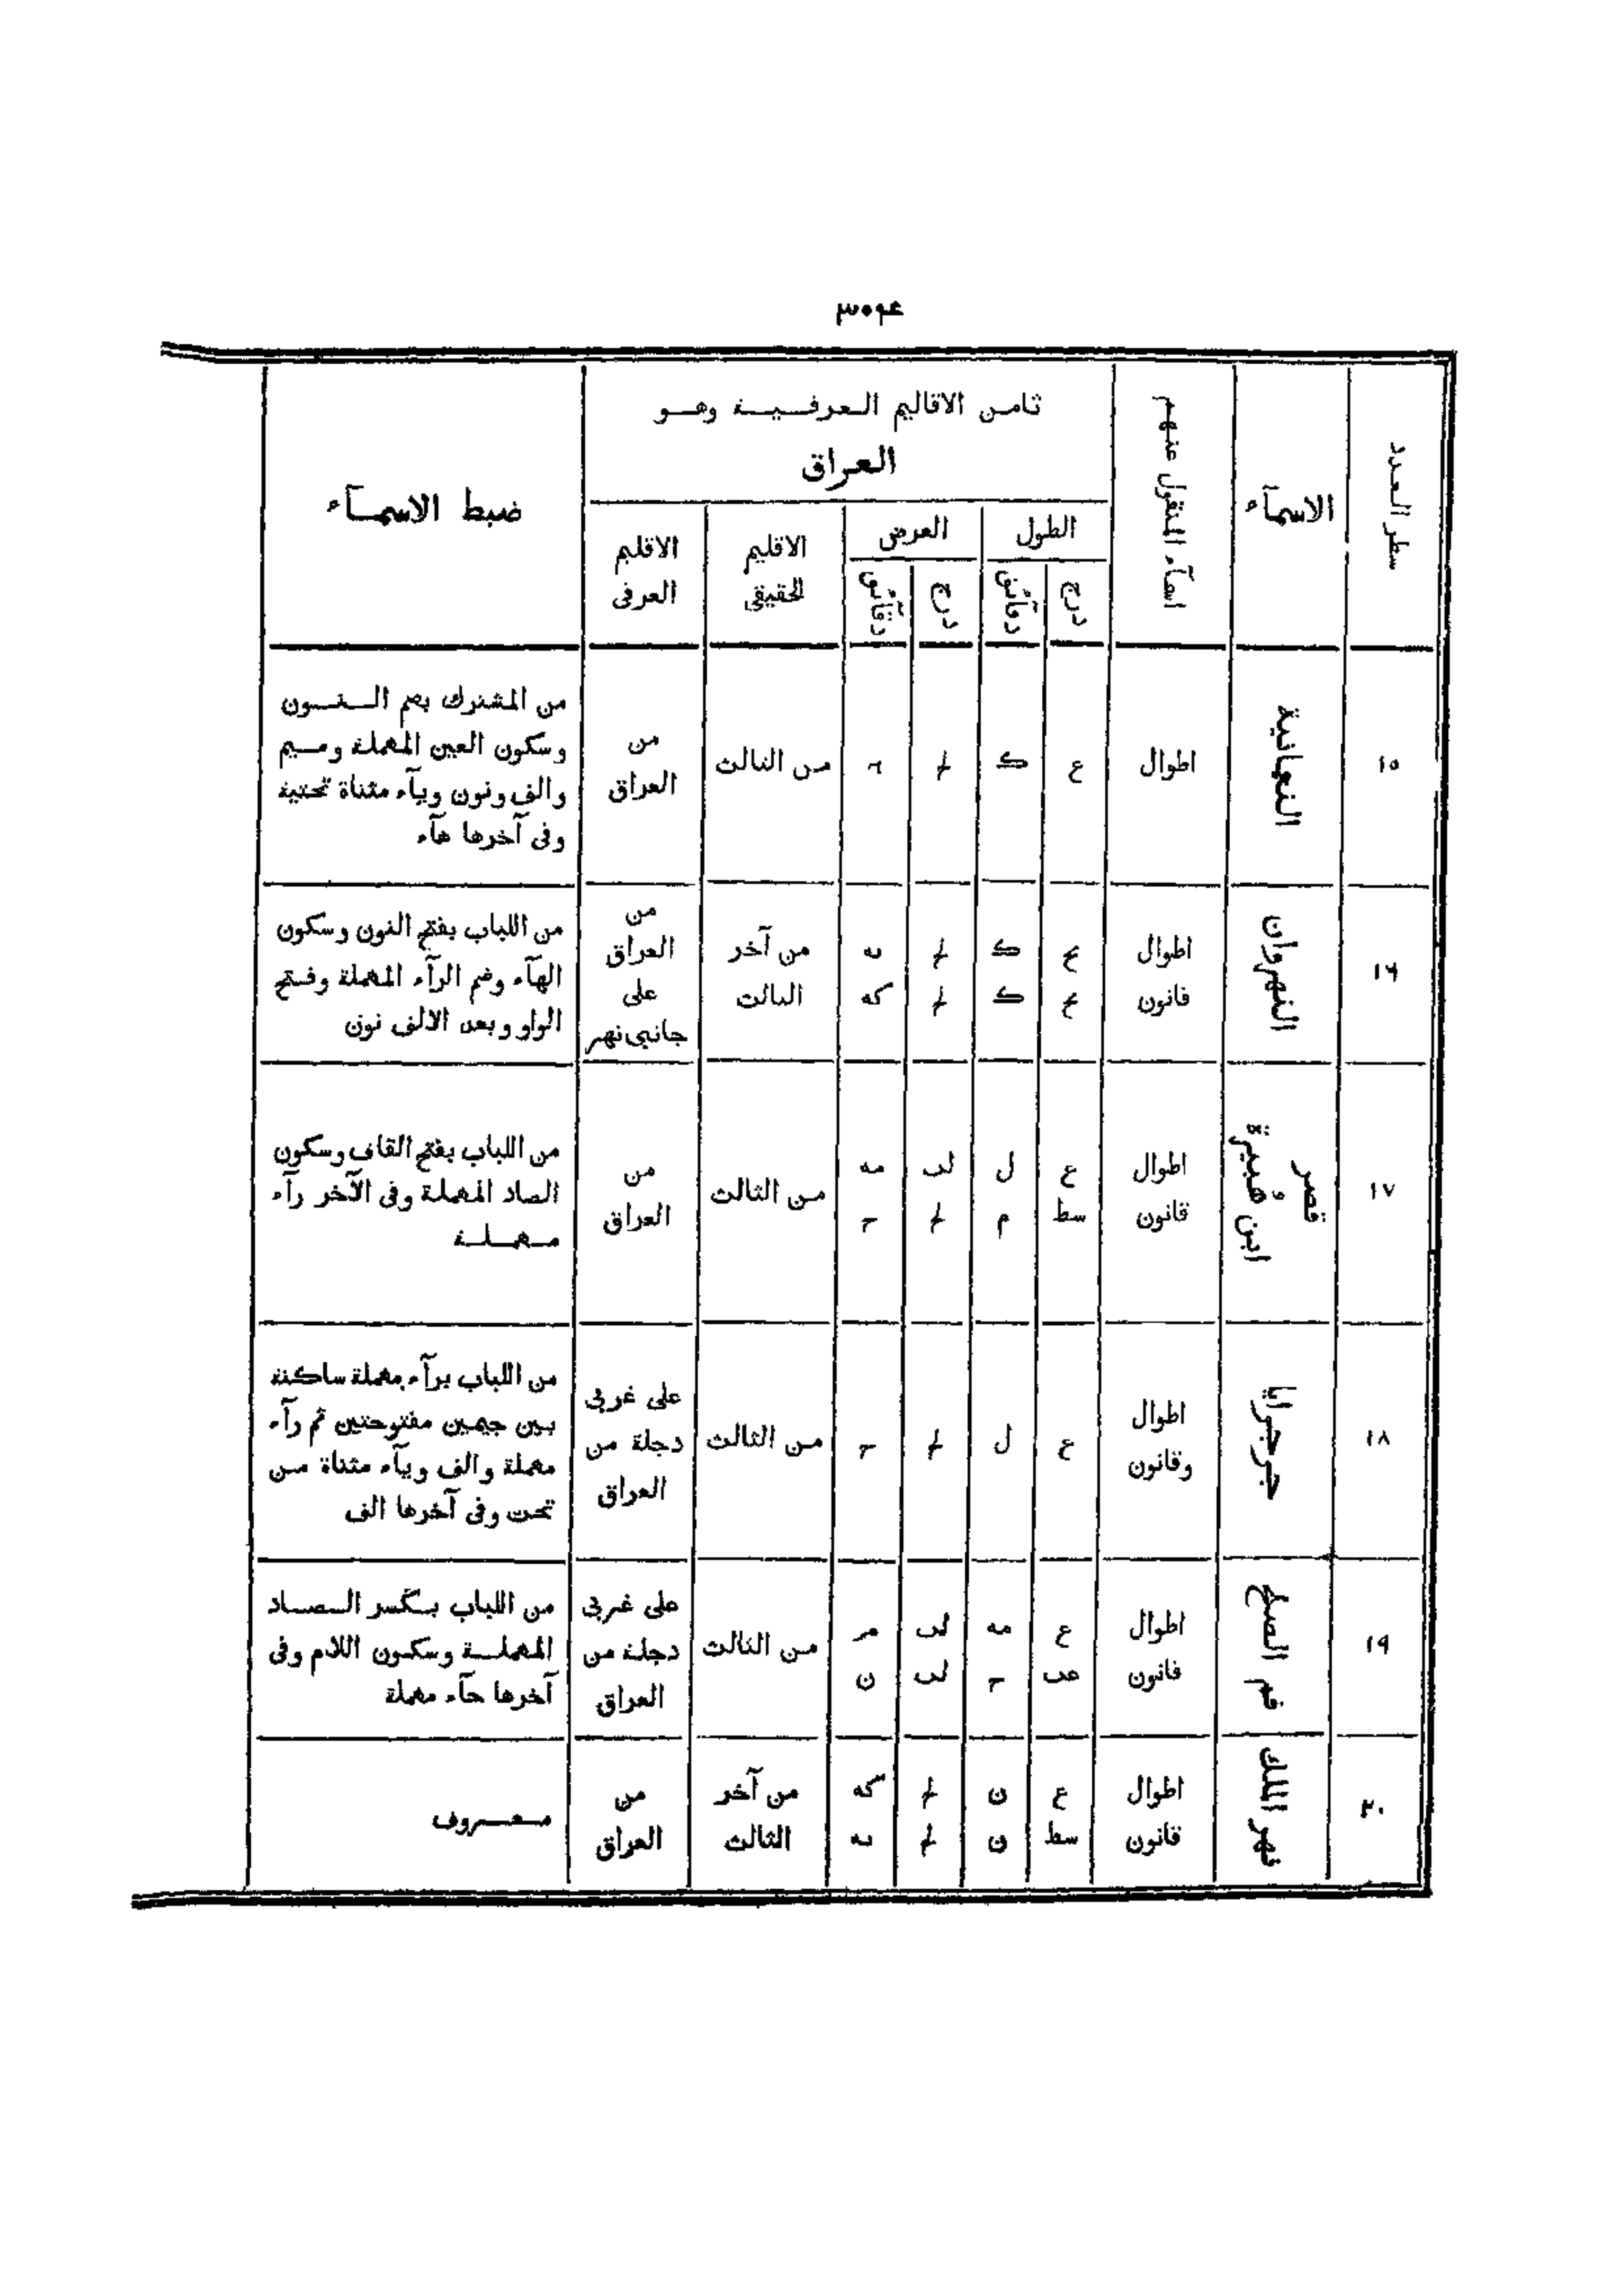 ٣٠٤
سطر العدد
الاسمآء
اسمآء المنقول عنهم
ثامن الاقاليم العرفية وهو
العراق
الطول
العرض
درج
دقآئق
درج
دقآئق
الاقليم
الحقيقى
الاقليم
العرفى
ضبط الاسمآء
١٥
النعمانية
اطوال
ع
ك
لح
من الثالث
من
العراق
من المشترك بضم النون
وسكون العين المهملة وميم
والف ونون ويآء مثناة تحتية
وفى آخرها هآء
١٦
النهروان
اطوال
قانون
ع
ع
ك
ك
لح
لح
ىه
كه
من آخر
الثالث
من
العراق
على
جانبى نهر
من اللباب بفتح النون وسكون
الهآء وضم الرآء المهملة وفتح
الواو وبعد الالف نون
١٧
قصر
ابن هُبيرة
اطوال
قانون
ع
سط
ل
م
لب
لح
مه
من الثالث
من
العراق
من اللباب بفتح القاف وسكون
الصاد المهملة وفى الآخر رآء
مهملة
١٨
جرجرايا
اطوال
وقانون
ع
ل
لح
من الثالث
على غربى
دجلة من
العراق
من اللباب برآء مهملة ساكنة
بين جيمين مفتوحتين ثم رآء
مهملة والف ويآء مثناة من
تحت وفى آخرها الف
١٩
فم الصلح
اطوال
قانون
ع
عب
مه
لب
لب
مر
ن
من الثالث
على غربى
دجلة من
العراق
من اللباب بكسر الصاد
المهملة وسكون اللام وفى
آخرها حآء مهملة
٢٠
نهر الملك
اطوال
قانون
ع
سط
ن
ن
لح
لح
كه
ىه
من آخر
الثالث
من
العراق
معروف